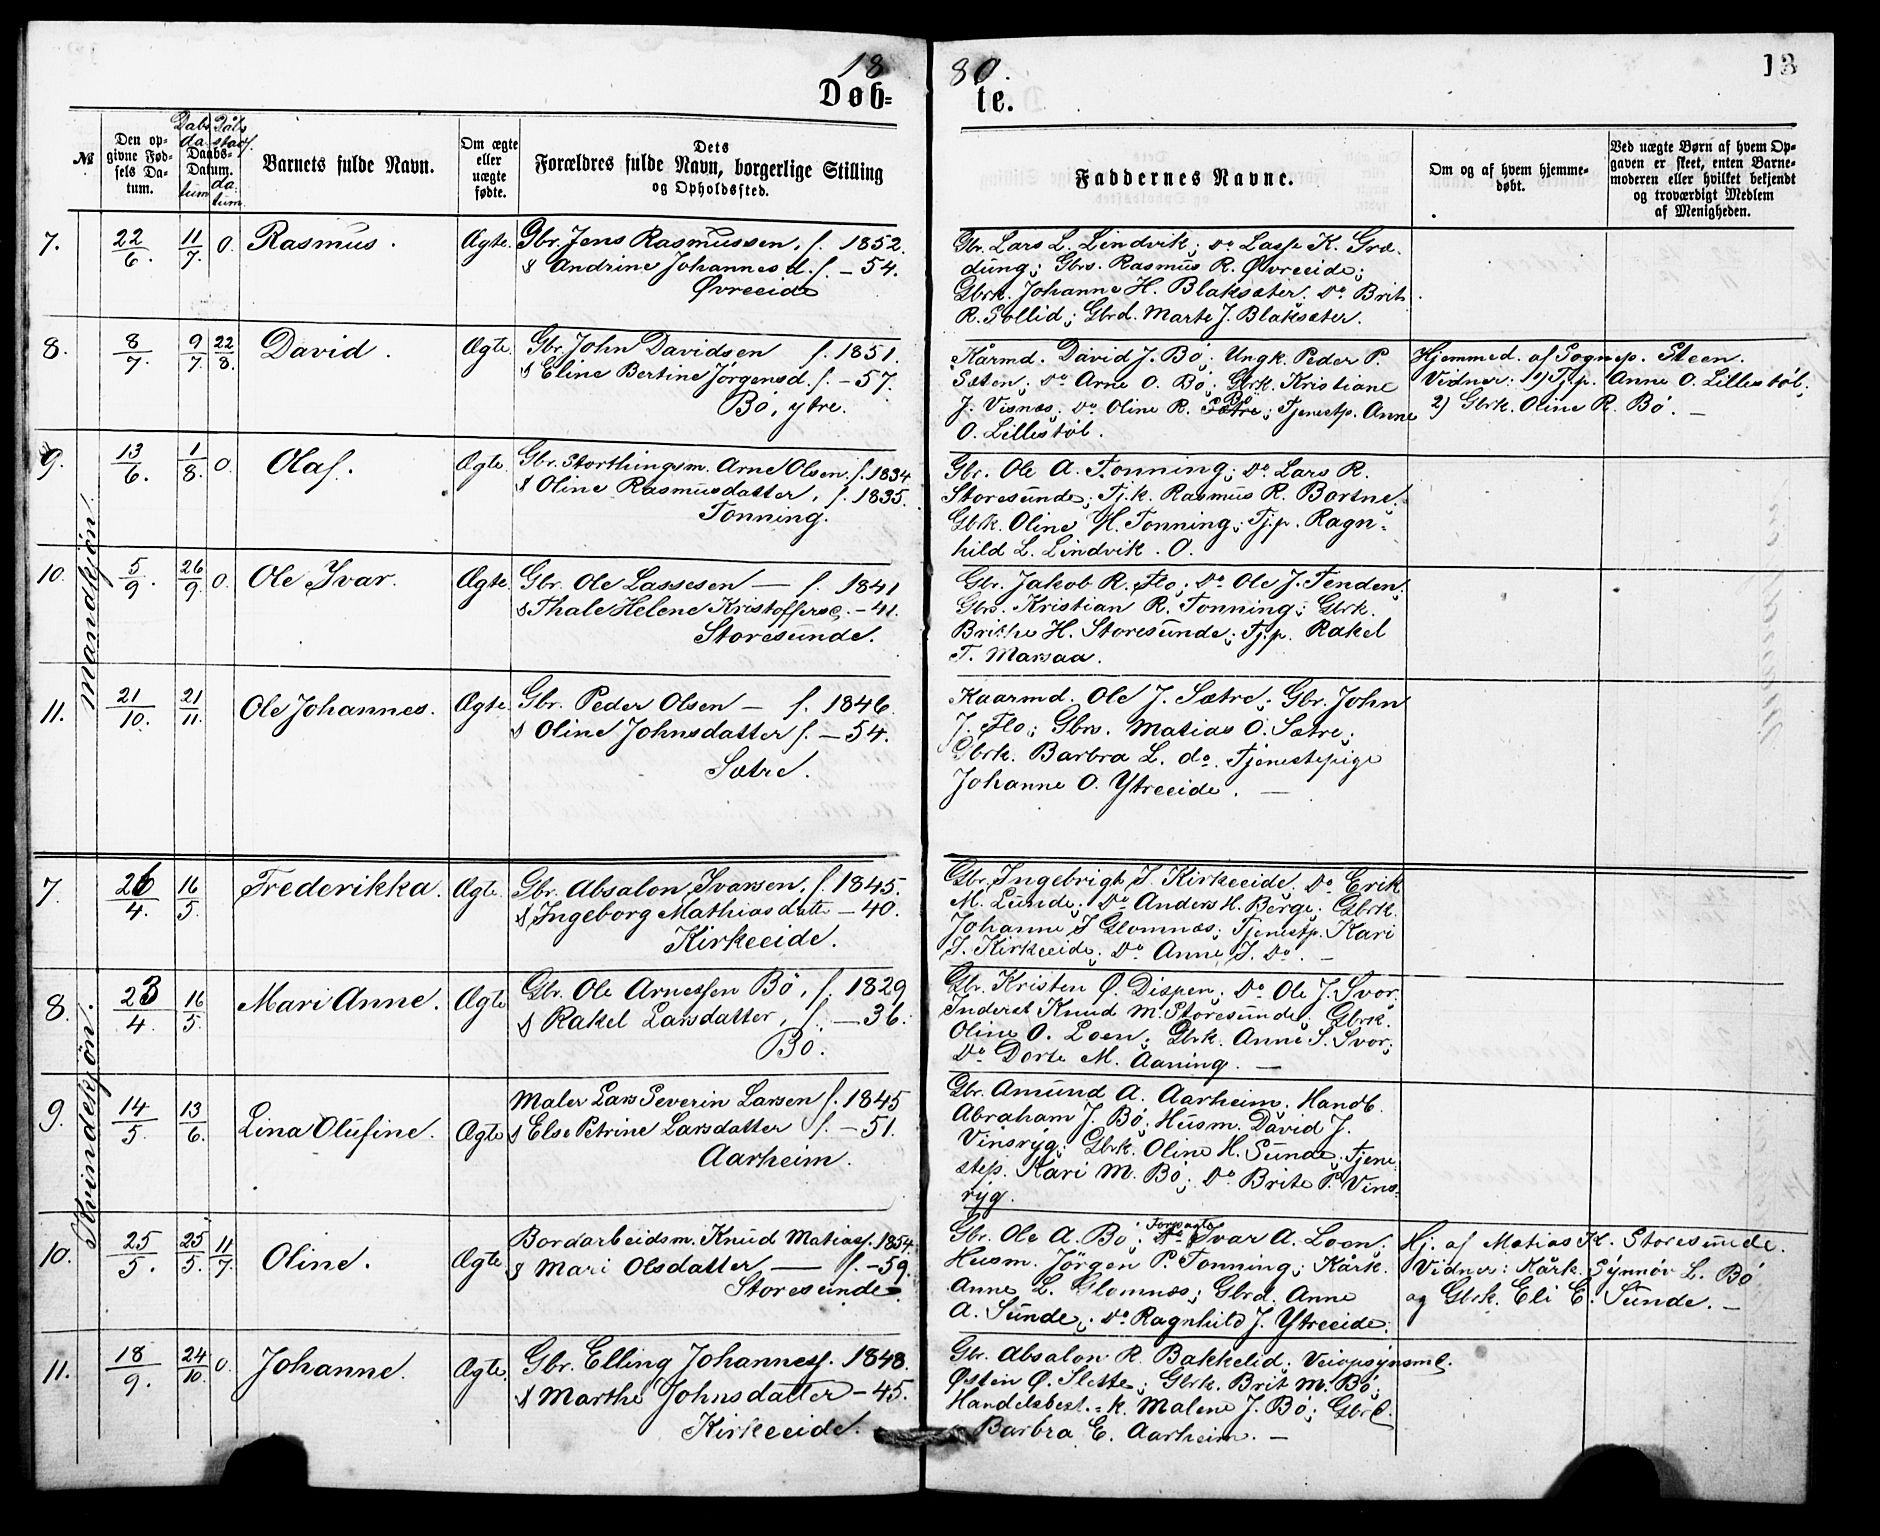 18 80. 13
Døb= te.
№
Den op-
givne Fød-
sels Da-
tum.
Daabs-
Datum.
Daabs
da
tum
Dåbs
stadf.
da
tum.
Barnets fulde Navn.
Om ægte
eller
uægte
fødte.
Dets
Forældres fulde Navn, borgerlige Stilling
og Opholdssted.
Faddernes Navne.
Om og af hvem hjemme-
døbt.
Ved uægte Børn af hvem Op-
gaven er skeet, enten Barne-
moderen eller hvilket bekjendt
og troværdigt Medlem
af Menigheden.
mandkjøn.
7. 22/6. 11/7. 0. Rasmus. Ægte.
Gbr. Jens Rasmussen, f. 1852.
& Andrine Johannesd. f. – 54.
Øvreeide
Gbr. Lars L. Lindvik; Do Lasse K. Græ-
dung; Gbrs. Rasmus R. Øvreeide;
Gbrk. Johanne H. Blaksæter. Do Brit
R. Sollid; Gbrd. Marte J. Blaksæter.
8. 8/7. 9/7. 22/8. David. Ægte.
Gbr. John Davidsen f. 1851.
& Eline Bertine Jørgensd. f. – 57.
Bö, ytre.
Kårmd. David J. Bö; Ungk. Peder P.
Sæten; Do Arne O. Bö; Gbrk. Kristiane
J. Visnæs; Do Oline R. Sætre Bö; Tjenestp. Anne
O. Lillestöl.
Hjemmed. af Sognep. Steen.
Vidner: 1) Tj.p. Anne O. Lillestöl;
2) Gbrk. Oline R. Bö. —
9. 13/6. 1/8. 0. Olaf. Ægte.
Gbr. Storthingsm. Arne Olsen, f. 1834
& Oline Rasmusdatter, f. 1835.
Tonning.
Gbr. Ole A. Tonning; Do Lars R.
Storesunde; Tj.k. Rasmus R. Bortne;
Gbrk. Oline H. Tonning; Tj.p. Ragn-
hild L. Lindvik. O.
10. 5/9. 26/9. 0. Ole Ivar. Ægte.
Gbr. Ole Lassesen — f. 1841
& Thale Helene Kristoffersd. – 41.
Storesunde.
Gbr. Jakob R. Flo; Do Ole J. Tenden;
Gbrs. Kristian R. Tonning; Gbrk.
Brithe H. Storesunde; Tj.p. Rakel
T. Marsaa.
11. 21/10. 21/11. Ole Johannes. Ægte.
Gbr. Peder Olsen – f. 1846.
& Oline Johnsdatter f. – 54.
Sætre.
Kaarmd. Ole J. Sætre; Gbr. John
J. Flo; Gbrs. Matias O. Sætre;
Gbrk. Barbra L. do. Tjenestepige
Johanne O. Ytreeide. —
Kvindekjøn.
7. 26/4. 16/5. Frederikka. Ægte.
Gbr. Absalon Ivarsen, f. 1845.
& Ingeborg Mathiasdatte – 40.
Kirkeeide.
Gbr. Ingebrigt J. Kirkeeide. Do Erik
M. Lunde; Do Anders H. Berge; Gbrk.
Johanne J Glomnæs; Tjenestp. Kari
J. Kirkeeide; Do Anne J. Do. —
8. 23/4. 16/5. Mari Anne. Ægte
Gbr. Ole Arnessen Bö, f. 1829
& Rakel Larsdatter, f. – 36.
Bö.
Gbr. Kristen Ø. Dispen; Do Ole J. Svor.
Inderst Knud M. Storesunde; Gbrk.
Oline O. Loen; Gbrk. Anne S. Svor;
Do Dorte M. Aaning. —
9. 14/5. 13/6. Lina Olufine. Ægte
Maler Lars Severin Larsen f. 1845
& Else Petrine Larsdatter f. – 51.
Aarheim.
Gbr. Amund A. Aarheim. Handb.
Abraham J. Bö; Husm. David J.
Vinsryg; Gbrk. Oline H. Sunde. Tjene
step. Kari M. Bö; Do Brite P. Vins-
ryg.
10. 25/5. 25/5. 11/7. Oline. Ægte.
Bordarbeidsm. Knud Matiass. 1854.
& Mari Olsdatter — f. – 59.
Storesunde.
Gbr. Ole A. Bö; Do Forpagter Ivar A. Loen;
Husm. Jörgen P. Tonning; Kårk.
Anne L. Glomnæs; Gbrd. Anne
A. Sunde; Do Ragnhild J. Ytreeide.
Hj. af Matias K. Storesunde.
Vidner: Kårk. Synnöv L. Bö
og Gbrk. Eli E. Sunde. —
11. 18/9. 24/10. 0. Johanne. Ægte.
Gbr. Elling Johanness. 1848.
& Marthe Johnsdatter – 45.
Kirkeeide.
Gbr. Absalon R. Bakkelid; Veiopsynsmd.
Østen Ø. Slette; Gbrk. Brit M. Bö;
Handelsbest.=k. Malene J. Bö; Gbrd.
Barbra E. Aarheim. —